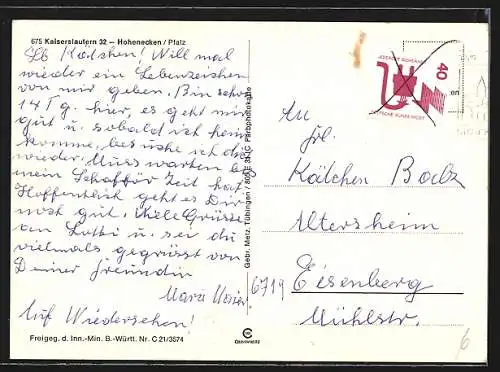 675 Kaiserslautern 32 – Hohenecken / Pfalz
Lb Kätchen! Will mal
wieder ein Lebenzeichen
von mir geben. Bin schon
14 Tg. hier, es geht mir
gut u. sobald ich heim
komme, besuche ich dich
wieder. Muss warten bis
mein Schafför Zeit hat
Hoffentlich geht es Dir
noch gut. Viele Grüsse
an Lotti u. sei du
vielmals gegrüsst von
Deiner Freundin
Maria
Auf Wiedersehen!
Freigeg. d. Inn.-Min. B.-Württ. Nr. C 21/3574
Gebr. Metz, Tübingen
40
DEUTSCHE BUNDESPOST
An
Frl.
Kätchen
Altersheim
6719 Eisenberg
Mühlstr.
6